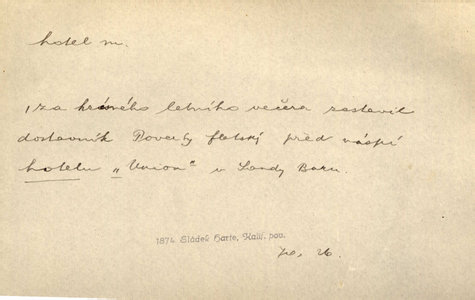 hotel m.
, za krásného letního večera zastavil
dostavník Poverty flatský před náspí
hotelu „Union“ v Sandy Baru.
1874 Sládek Harte, Kalif. pov.
26.